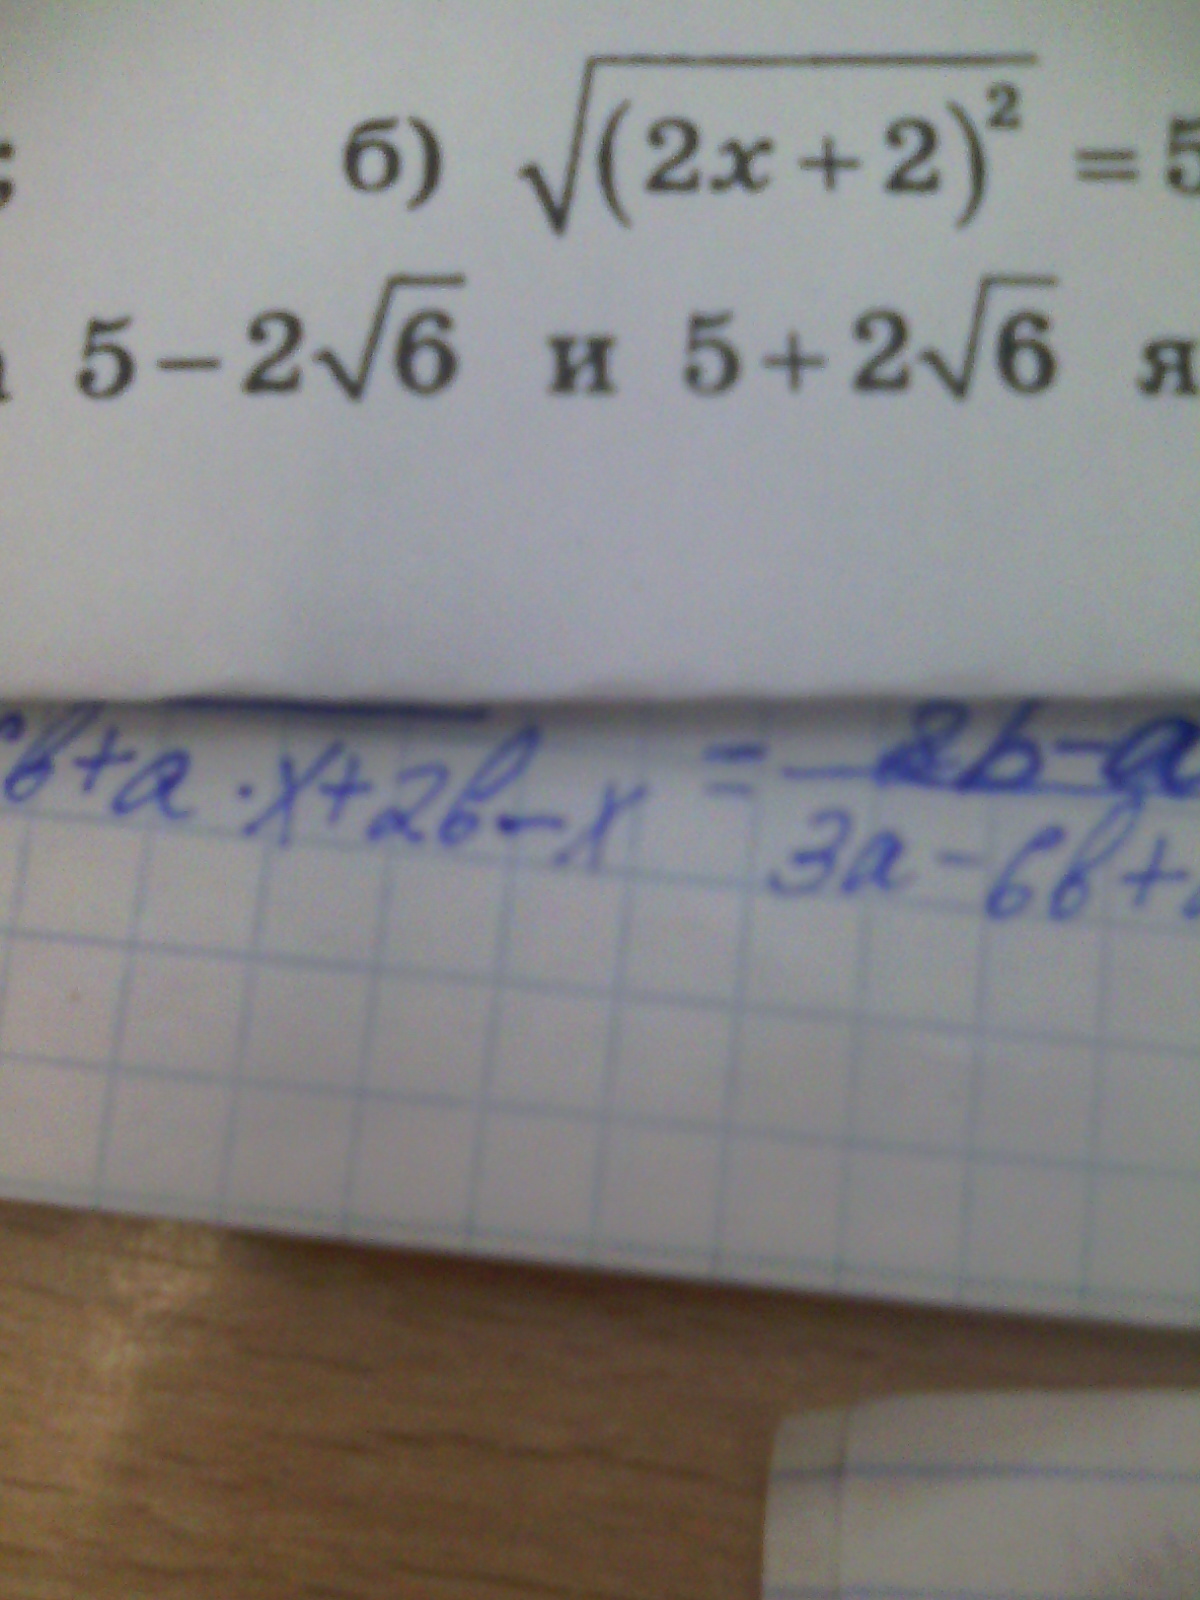 б) √(2x+2)² = 5
5−2√6 и 5+2√6 я
6b+a·x+2b−x = 2b−a
3a−6b+